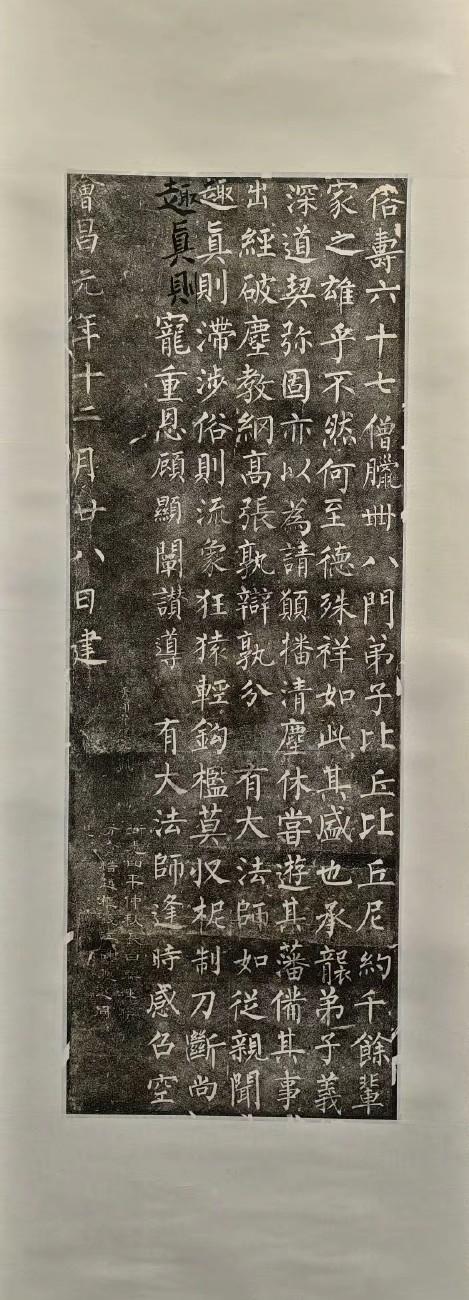 俗壽六十七僧臘卌八門弟子比丘比丘尼約千餘輩
家之雄乎不然何至德殊祥如此其盛也承襲弟子義
深道契弥固亦以為請顛播清塵休甞遊其藩備其事
出經破塵教網髙張孰辯孰分 有大法師如從親聞
趣真則滯涉俗則流象狂猿輕鉤檻莫収柅制刀斷尚
趣真則寵重恩顧顯闡讃導 有大法師逢時感召空
會昌元年十二月廿八日建